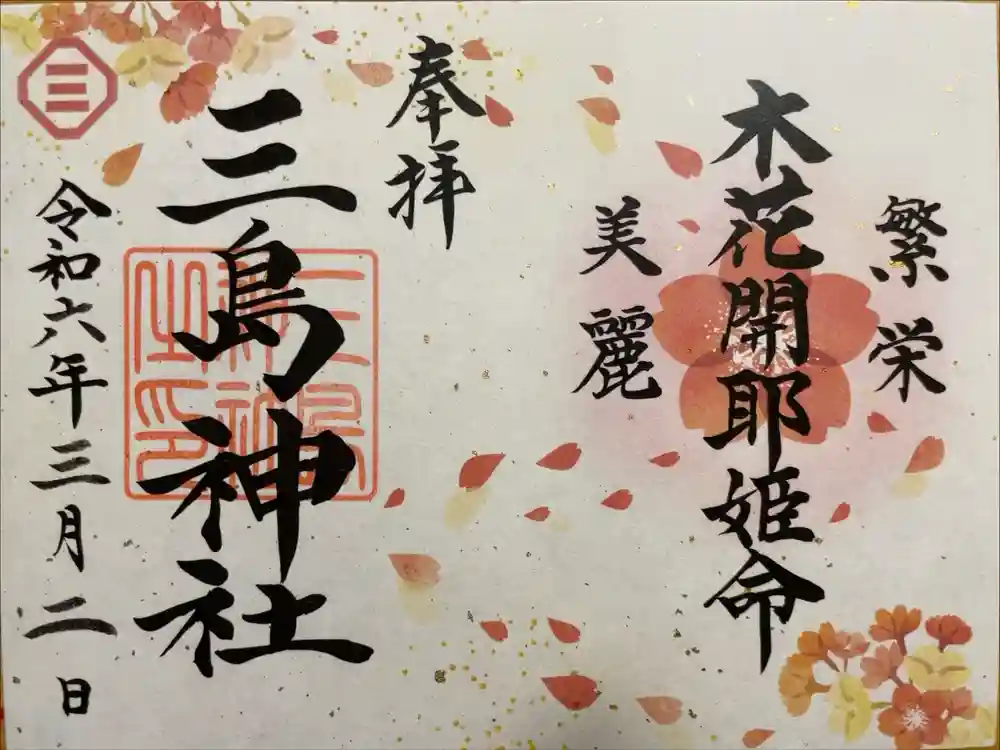 繁栄
木花開耶姫命
美麗
奉拝
三島神社
三島神社之印
令和六年三月二日
三